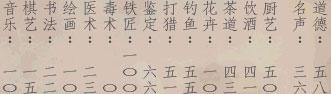 道德：五八
名声：三六
厨艺：五〇
饮酒：四一
茶道：四三
花卉：一〇
钓鱼：五五
打猎：五一
鉴定：六六
铁匠：一〇〇
毒术：一〇
医术：二三
绘画：一〇
书法：一二
棋艺：一五
音乐：一〇